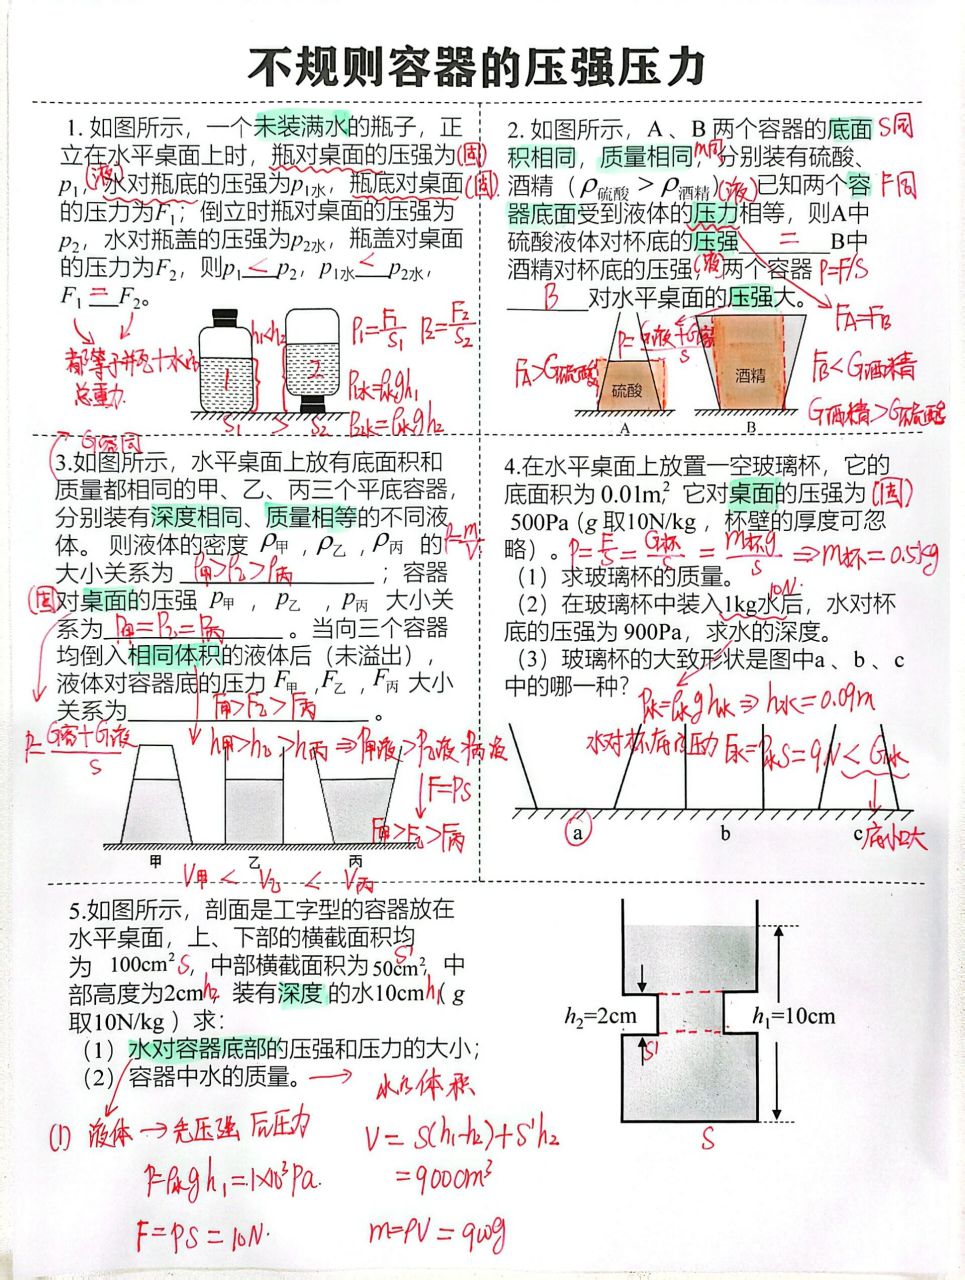 不规则容器的压强压力
1. 如图所示，一个未装满水的瓶子，正
立在水平桌面上时，瓶对桌面的压强为(固)
p₁，(液)水对瓶底的压强为p₁水，瓶底对桌面(固)
的压力为F₁；倒立时瓶对桌面的压强为
p₂，水对瓶盖的压强为p₂水，瓶盖对桌面
的压力为F₂，则p₁ < p₂，p₁水 < p₂水，
F₁ = F₂。
都等于瓶+水的
总重力
1
2
h₁<h₂
S₁ > S₂
P₁=F₁/S₁ P₂=F₂/S₂
P₁水=ρ水gh₁
P₂水=ρ水gh₂
2. 如图所示，A 、B 两个容器的底面 S同
积相同，质量相同，m同 分别装有硫酸、
酒精（ρ硫酸 > ρ酒精）(液) 已知两个容 F同
器底面受到液体的压力相等，则A中
硫酸液体对杯底的压强 = B中
酒精对杯底的压强，(液)两个容器 P=F/S
B 对水平桌面的压强大。
FA=FB
P=(G液+G容)/S
FA>G硫酸
FB<G酒精
G酒精>G硫酸
硫酸
酒精
A
B
G容同
3.如图所示，水平桌面上放有底面积和
质量都相同的甲、乙、丙三个平底容器，
分别装有深度相同、质量相等的不同液
体。 则液体的密度 ρ甲 , ρ乙 , ρ丙 的 ρ=m/V
大小关系为 ρ甲>ρ乙>ρ丙 ；容器
(固)对桌面的压强 p甲 ， p乙 ， p丙 大小关
系为 P甲=P乙=P丙 。当向三个容器
均倒入相同体积的液体后（未溢出），
液体对容器底的压力 F甲 ,F乙 , F丙 大小
关系为 F甲>F乙>F丙 。
P=(G容+G液)/S
h甲>h乙>h丙 ⇒ P甲液>P乙液>P丙液
F=PS
F甲>F乙>F丙
甲
乙
丙
V甲 < V乙 < V丙
4.在水平桌面上放置一空玻璃杯，它的
底面积为 0.01m²，它对桌面的压强为 (固)
500Pa（g 取10N/kg ，杯壁的厚度可忽
略）。P=F/S=G杯/S=m杯g/S ⇒ m杯=0.5kg
（1）求玻璃杯的质量。
10N
（2）在玻璃杯中装入1kg水后，水对杯
底的压强为 900Pa，求水的深度。
（3）玻璃杯的大致形状是图中a 、b 、c
中的哪一种？
P水=ρ水gh水 ⇒ h水=0.09m
水对杯底的压力 F水=P水S=9N<G水
底小口大
a
b
c
5.如图所示，剖面是工字型的容器放在
水平桌面，上、下部的横截面积均
为 100cm² S，中部横截面积为 50cm² S'，中
部高度为2cm h₂，装有深度的水10cm h₁（ g
取10N/kg ）求：
（1）水对容器底部的压强和压力的大小；
（2）容器中水的质量。→ 水的体积
(1) 液体→先压强 后压力
P=ρ水gh₁=1×10³Pa.
F=PS=10N.
V= S(h₁-h₂)+S'h₂
=900cm³
m=ρV=900g
h₂=2cm
h₁=10cm
S'
S